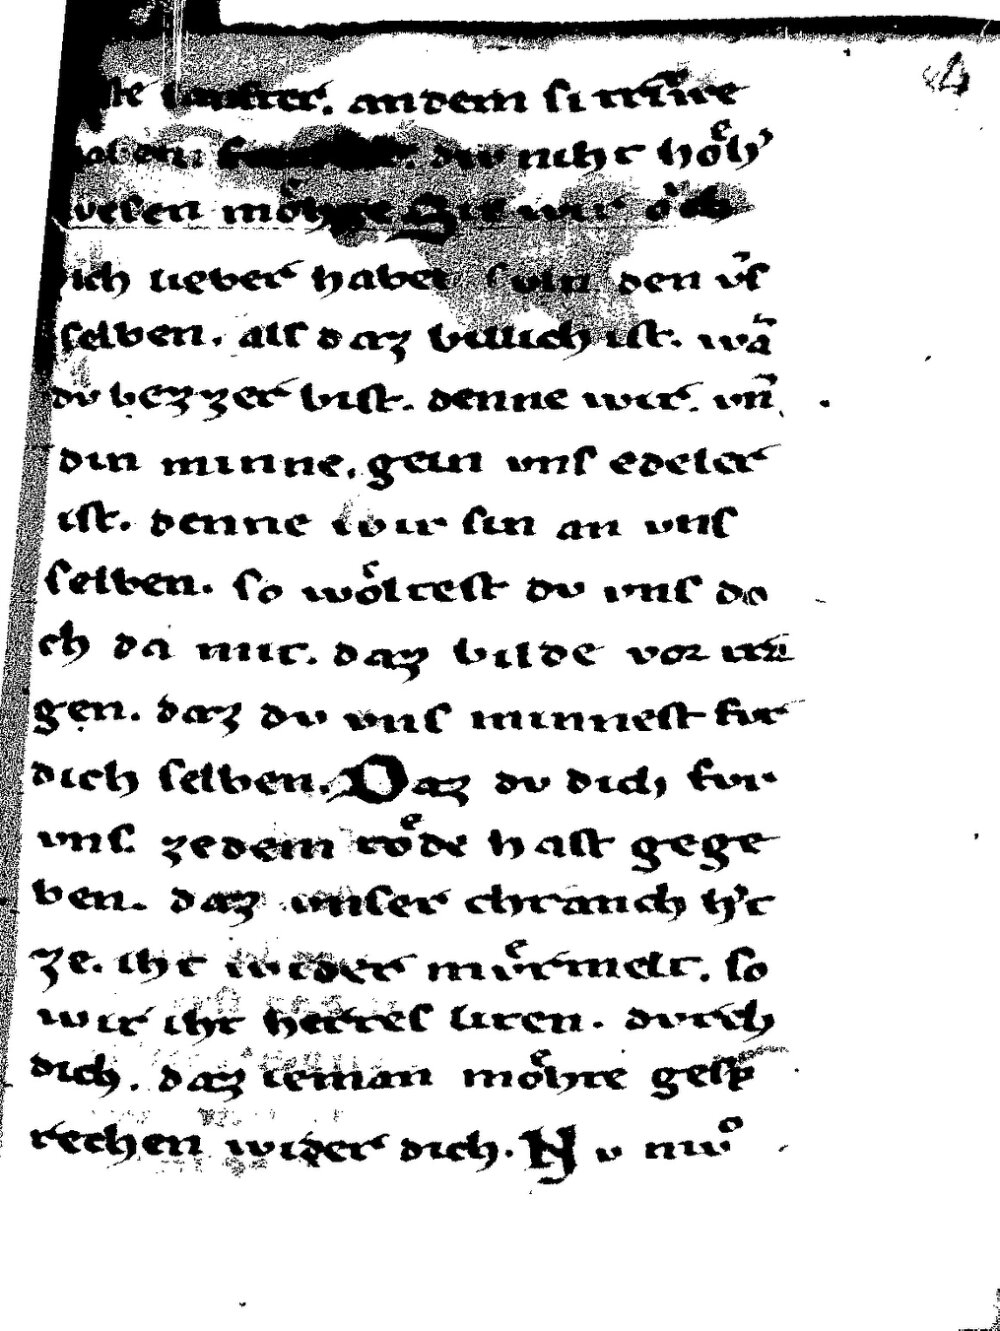 4
ste andem si triwe
haben div niht hoͤh'
wesen moͤhte Sit wir oͮch
dich lieber haben suln den v̄s
selben. als daz billich ist. wā
dv bezzer bist. denne wir. vn̄
din minne. gein vns edeler
ist. denne wir sin an vns
selben. so woͤltest dv vns do
ch da mit. daz bilde vor tra
gen. daz dv vns minnest fvr
dich selben. Daz dv dich fvr
vns zedem toͤde hast gege
ben. daz vnser chranch h't
ze. iht wider mvͤrmelt. so
wir iht herres liten. dvrch
dich. daz ieman moͤhte gesp
rechen wider dich. Nv mvͦ